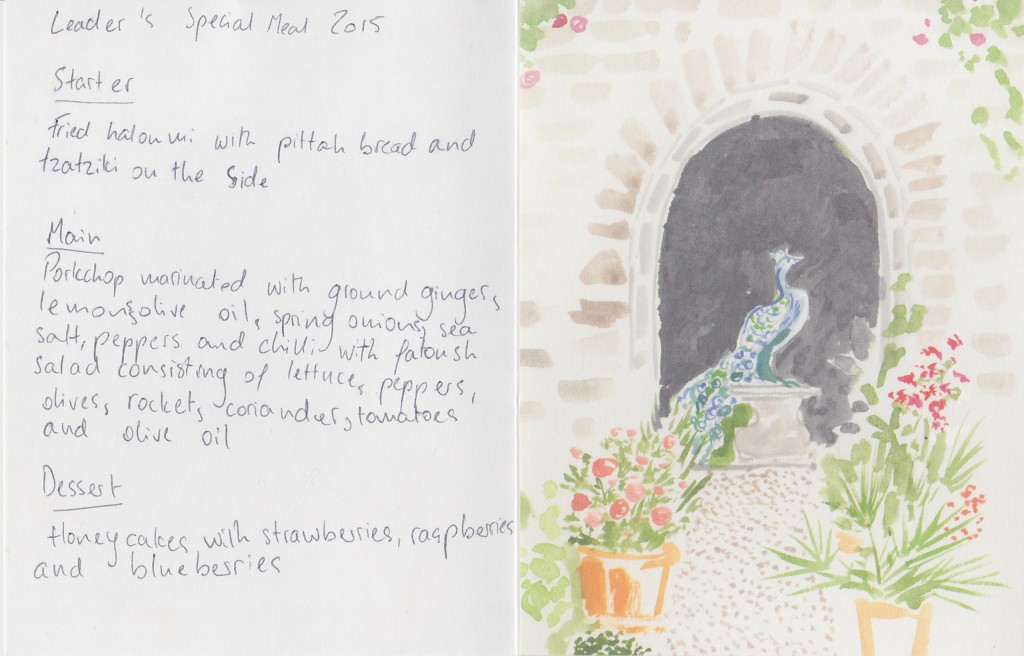 Leader's Special Meal 2015
Starter
Fried haloumi with pittah bread and
tzatziki on the side
Main
Porkchop marinated with ground ginger,
lemon, olive oil, spring onions, sea
salt, peppers and chilli with fatoush
salad consisting of lettuce, peppers,
olives, rocket, coriander, tomatoes
and olive oil
Dessert
Honey cakes with strawberries, raspberries
and blueberries